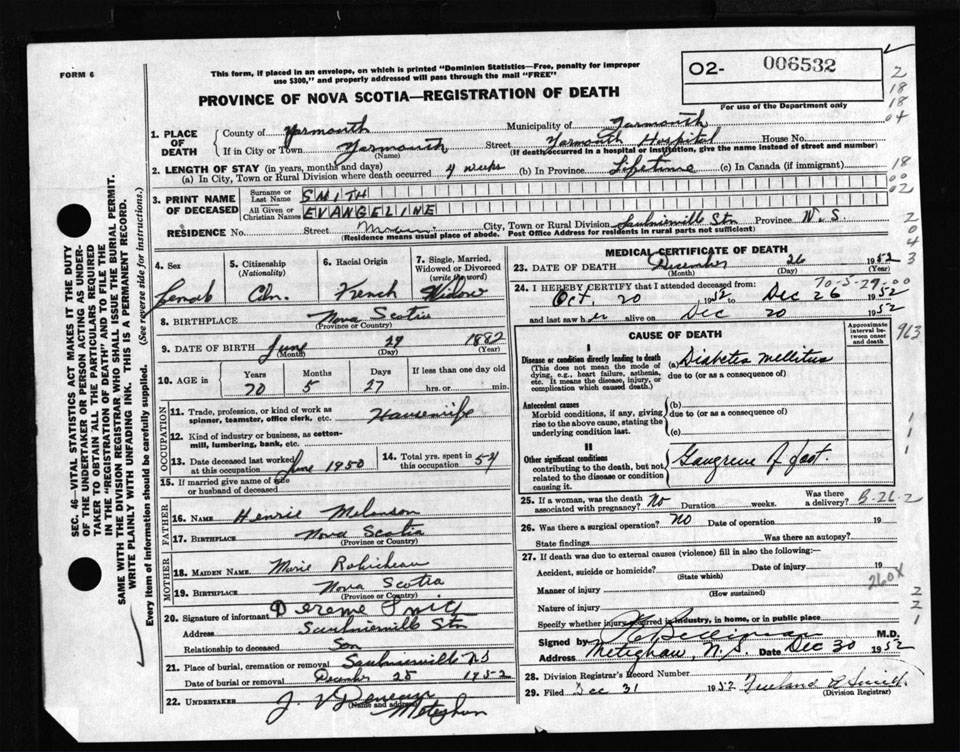 FORM 6
This form, if placed in an envelope, on which is printed "Dominion Statistics—Free, penalty for improper
use $300," and properly addressed will pass through the mail "FREE"
02- 006532
For use of the Department only
PROVINCE OF NOVA SCOTIA—REGISTRATION OF DEATH
1. PLACE OF DEATH
County of Yarmouth Municipality of Yarmouth
If in City or Town Yarmouth (Name) Street Yarmouth Hospital House No.
(If death occurred in a hospital or institution, give the name instead of street and number)
2. LENGTH OF STAY (in years, months and days)
(a) In City, Town or Rural Division where death occurred 4 weeks (b) In Province Lifetime (c) In Canada (if immigrant)
3. PRINT NAME OF DECEASED
Surname or Last Name SMITH
All Given or Christian Names EVANGELINE
RESIDENCE No. Street City, Town or Rural Division Saulnierville Stn Province N.S.
(Residence means usual place of abode. Post Office Address for residents in rural parts not sufficient)
4. Sex
Female
5. Citizenship (Nationality)
Cdn.
6. Racial Origin
French
7. Single, Married, Widowed or Divorced (write the word)
Widow
8. BIRTHPLACE Nova Scotia
(Province or Country)
9. DATE OF BIRTH June 29 1882
(Month) (Day) (Year)
10. AGE in Years Months Days If less than one day old
70 5 27 hrs. or min.
11. Trade, profession, or kind of work as spinner, teamster, office clerk, etc. Housewife
12. Kind of industry or business, as cotton-mill, lumbering, bank, etc.
13. Date deceased last worked at this occupation June 1950
14. Total yrs. spent in this occupation 54
15. If married give name of wife or husband of deceased
FATHER
16. NAME Henrie Melanson
17. BIRTHPLACE Nova Scotia
(Province or Country)
MOTHER
18. MAIDEN NAME Marie Robicheau
19. BIRTHPLACE Nova Scotia
(Province or Country)
20. Signature of informant Smith
Address Saulnierville Stn
Relationship to deceased Son
21. Place of burial, cremation or removal Saulnierville NS
Date of burial or removal December 28 1952
22. UNDERTAKER J. V Deveau
(Name and address)
Meteghan
MEDICAL CERTIFICATE OF DEATH
23. DATE OF DEATH December 26 1952
(Month) (Day) (Year)
70-5-27-00
24. I HEREBY CERTIFY that I attended deceased from:
Oct. 20 1952 to Dec 26 1952
and last saw her alive on Dec 20 1952
CAUSE OF DEATH
Approximate interval between onset and death
I
Disease or condition directly leading to death
(This does not mean the mode of dying, e.g., heart failure, asthenia, etc. It means the disease, injury, or complication which caused death.)
(a) Diabetes mellitus
due to (or as a consequence of)
Antecedent causes
Morbid conditions, if any, giving rise to the above cause, stating the underlying condition last.
(b)
due to (or as a consequence of)
(c)
II
Other significant conditions
contributing to the death, but not related to the disease or condition causing it.
Gangrene of foot.
25. If a woman, was the death associated with pregnancy? No Duration weeks. Was there a delivery?
B-26-2
26. Was there a surgical operation? No Date of operation 19
State findings Was there an autopsy?
27. If death was due to external causes (violence) fill in also the following:—
Accident, suicide or homicide? (State which) Date of injury 19
260X
Manner of injury (How sustained)
Nature of injury
Specify whether injury occurred in industry, in home, or in public place
Signed by M.D.
Address Meteghan, N.S. Date Dec 30 1952
28. Division Registrar's Record Number
29. Filed Dec 31 1952
(Division Registrar)
SEC. 46—VITAL STATISTICS ACT MAKES IT THE DUTY
OF THE UNDERTAKER OR PERSON ACTING AS UNDER-
TAKER TO OBTAIN ALL THE PARTICULARS REQUIRED
IN THE "REGISTRATION OF DEATH" AND TO FILE THE
SAME WITH THE DIVISION REGISTRAR WHO SHALL ISSUE THE BURIAL PERMIT.
WRITE PLAINLY WITH UNFADING INK. THIS IS A PERMANENT RECORD.
Every item of information should be carefully supplied. (See reverse side for instructions.)
2
18
18
04
18
00
02
963